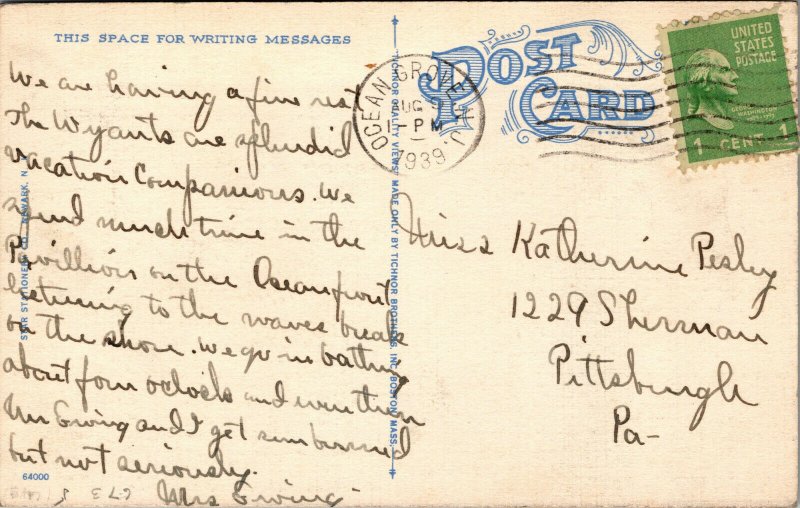 THIS SPACE FOR WRITING MESSAGES
POST
CARD
OCEAN GROVE N.J.
AUG 9
1 - PM
1939
UNITED
STATES
POSTAGE
1 CENT 1
We are having a fine rest
The Wyants are splendid
vacation Companions. We
spend much time in the
Pavillion on the Oceanfront
listening to the waves break
on the shore. We go in bathing
about four o'clock and even then
Mr Ewing and I get sunburned
but not seriously.
Mrs Ewing
Miss Katherine Pesley
1229 Sherman
Pittsburgh
Pa-
STAR STATIONERY CO., NEWARK, N. J.
TICHNOR QUALITY VIEWS MADE ONLY BY TICHNOR BROTHERS, INC., BOSTON, MASS.
64000